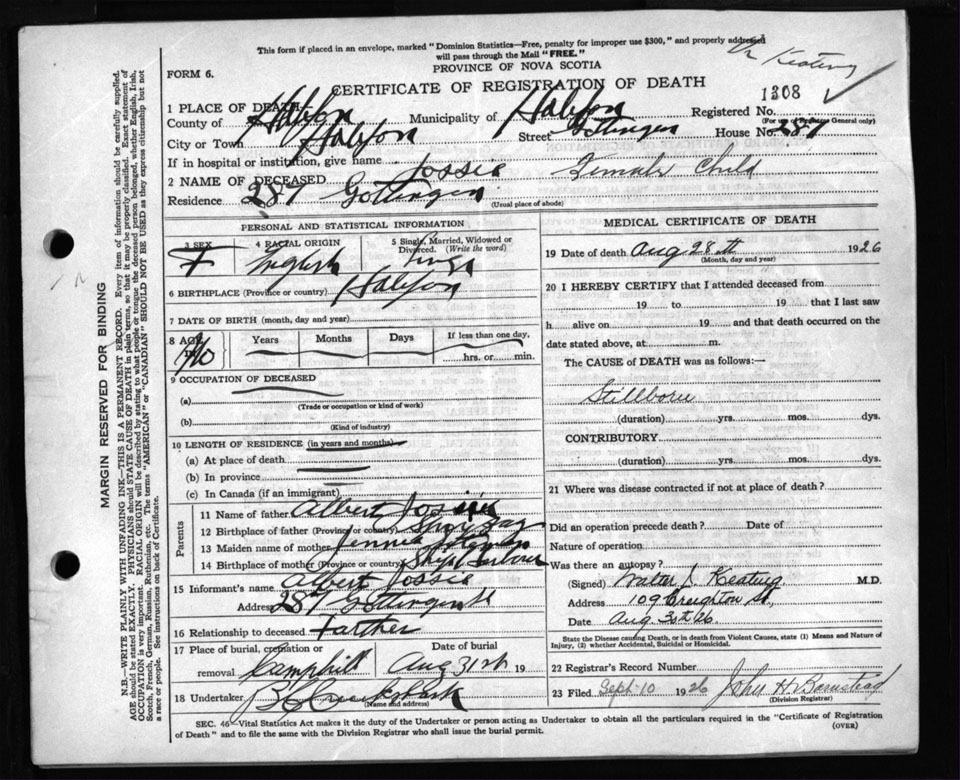 This form if placed in an envelope, marked "Dominion Statistics—Free, penalty for improper use $300," and properly addressed
will pass through the Mail "FREE."
Keating
PROVINCE OF NOVA SCOTIA
FORM 6.
CERTIFICATE OF REGISTRATION OF DEATH
1308
1 PLACE OF DEATH
County of Halifax Municipality of Halifax Registered No.
City or Town Halifax Street Gottingen House No. 287
If in hospital or institution, give name
2 NAME OF DECEASED Jossie Female Child
Residence 287 Gottingen
(Usual place of abode)
PERSONAL AND STATISTICAL INFORMATION
3 SEX F
4 RACIAL ORIGIN English
5 Single, Married, Widowed or Divorced. (Write the word)
6 BIRTHPLACE (Province or country) Halifax
7 DATE OF BIRTH (month, day and year)
8 AGE Years Months Days If less than one day, hrs. or min.
9 OCCUPATION OF DECEASED
(a)
(Trade or occupation or kind of work)
(b)
(Kind of industry)
10 LENGTH OF RESIDENCE (in years and months)
(a) At place of death
(b) In province
(c) In Canada (if an immigrant)
Parents
11 Name of father Albert Jossie
12 Birthplace of father (Province or country)
13 Maiden name of mother
14 Birthplace of mother (Province or country) Ship Harbour
15 Informant's name Albert Jossie
Address 287 Gottingen St
16 Relationship to deceased Farther
17 Place of burial, cremation or removal Camphill Date of burial Aug 31st 19
18 Undertaker
(Name and address)
MEDICAL CERTIFICATE OF DEATH
19 Date of death Aug 28th 1926
(Month, day and year)
20 I HEREBY CERTIFY that I attended deceased from
19 to 19 that I last saw
h alive on 19 and that death occurred on the
date stated above, at m.
The CAUSE of DEATH was as follows:—
Stillborn
(duration) yrs. mos. dys.
CONTRIBUTORY
(duration) yrs. mos. dys.
21 Where was disease contracted if not at place of death?
Did an operation precede death? Date of
Nature of operation
Was there an autopsy?
(Signed) Walter J. Keating M.D.
Address 109 Creighton St,
Date Aug 30th 26.
State the Disease causing Death, or in death from Violent Causes, state (1) Means and Nature of
Injury, (2) whether Accidental, Suicidal or Homicidal.
22 Registrar's Record Number
23 Filed Sept 10 1926
(Division Registrar)
SEC. 46—Vital Statistics Act makes it the duty of the Undertaker or person acting as Undertaker to obtain all the particulars required in the "Certificate of Registration
of Death" and to file the same with the Division Registrar who shall issue the burial permit.
(OVER)
MARGIN RESERVED FOR BINDING
N.B.—WRITE PLAINLY WITH UNFADING INK—THIS IS A PERMANENT RECORD. Every item of information should be carefully supplied.
AGE should be stated EXACTLY. PHYSICIANS should STATE CAUSE OF DEATH in plain terms, so that it may be properly classified. Exact statement of
OCCUPATION is very important. RACIAL ORIGIN will be described by stating to what people or tongue the deceased person belonged, whether English, Irish,
Scotch, French, German, Russian, Ruthenian, etc. The terms "AMERICAN" or "CANADIAN" SHOULD NOT BE USED as they express citizenship but not
a race or people. See instructions on back of Certificate.